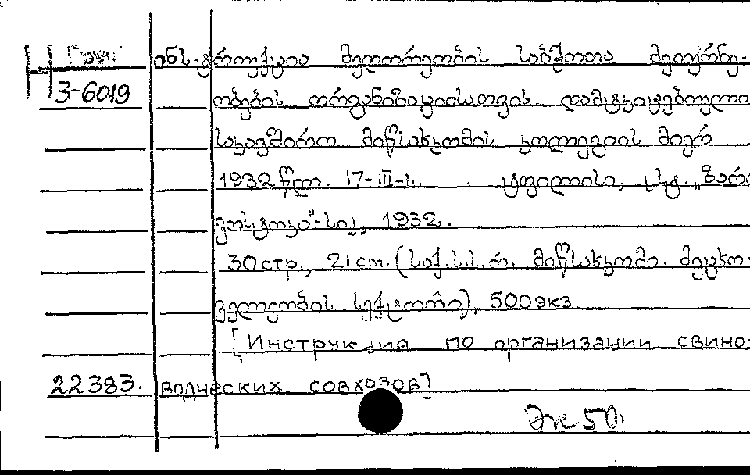 ინსტრუქცია მეღორეობის საბჭოთა მეურნე-
3-6019 ობების ორგანიზაციისათვის დამტკიცებული
საკავშირო მიწსახკომის კოლეგიის მიერ
1932 წლ. 17-III-ს. ტფილისი, სტ. „ზარია
ვოსტოკა"-სი, 1932.
30 стр., 21 cm. (საქ.ს.ს.რ. მიწსახკომი. მეცხო-
ველეობის სექტორი), 500 экз.
[Инструкция по организации свино-
22383. водческих совхозов]
50